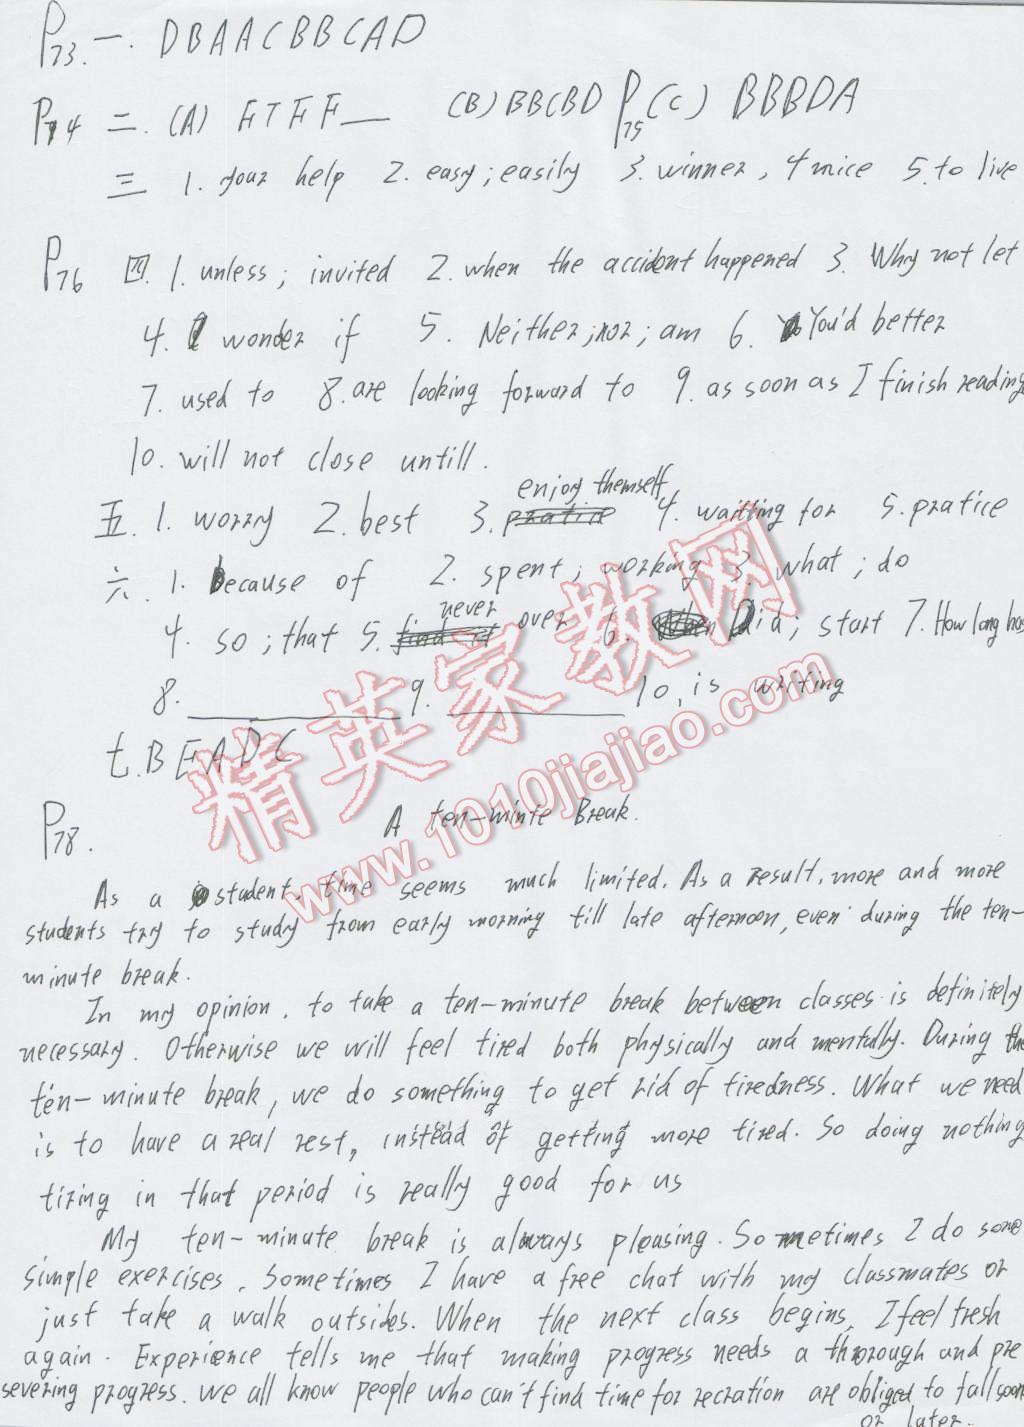 P73. 一. DBAACBBCAD
P74 二. (A) FTFF__ (B) BBCBD P75 (C) BBBDA
三 1. your help 2. easy; easily 3. winner, 4 mice 5. to live
P76 四. 1. unless; invited 2. when the accident happened 3. Why not let
4. I wonder if 5. Neither; nor; am 6. You'd better
7. used to 8. are looking forward to 9. as soon as I finish reading
10. will not close untill.
五 1. worry 2. best 3. enjoy themself 4. waitting for 5. pratice
六. 1. Because of 2. spent; working 3. what; do
4. so; that 5. never over 6. Did; start 7. How long has
8. ____ 9. ____ 10. is writing
七. BEADC
P78. A ten-minte Break.
As a student, time seems much limited. As a result, more and more
students try to study from early morning till late afternoon, even during the ten-
minute break.
In my opinion, to take a ten-minute break between classes is definitely
necessary. Otherwise we will feel tired both physically and mentally. During the
ten-minute break, we do something to get rid of tiredness. What we need
is to have a real rest, instead of getting more tired. So doing nothing
tiring in that period is really good for us
My ten-minute break is always pleasing. Sometimes I do some
simple exercises. Sometimes I have a free chat with my classmates or
just take a walk outsides. When the next class begins, I feel fresh
again. Experience tells me that making progress needs a thorough and pre
severing progress. we all know people who can't find time for recration are obliged to fall soon
or later.
精英家教网
www.1010jiajiao.com